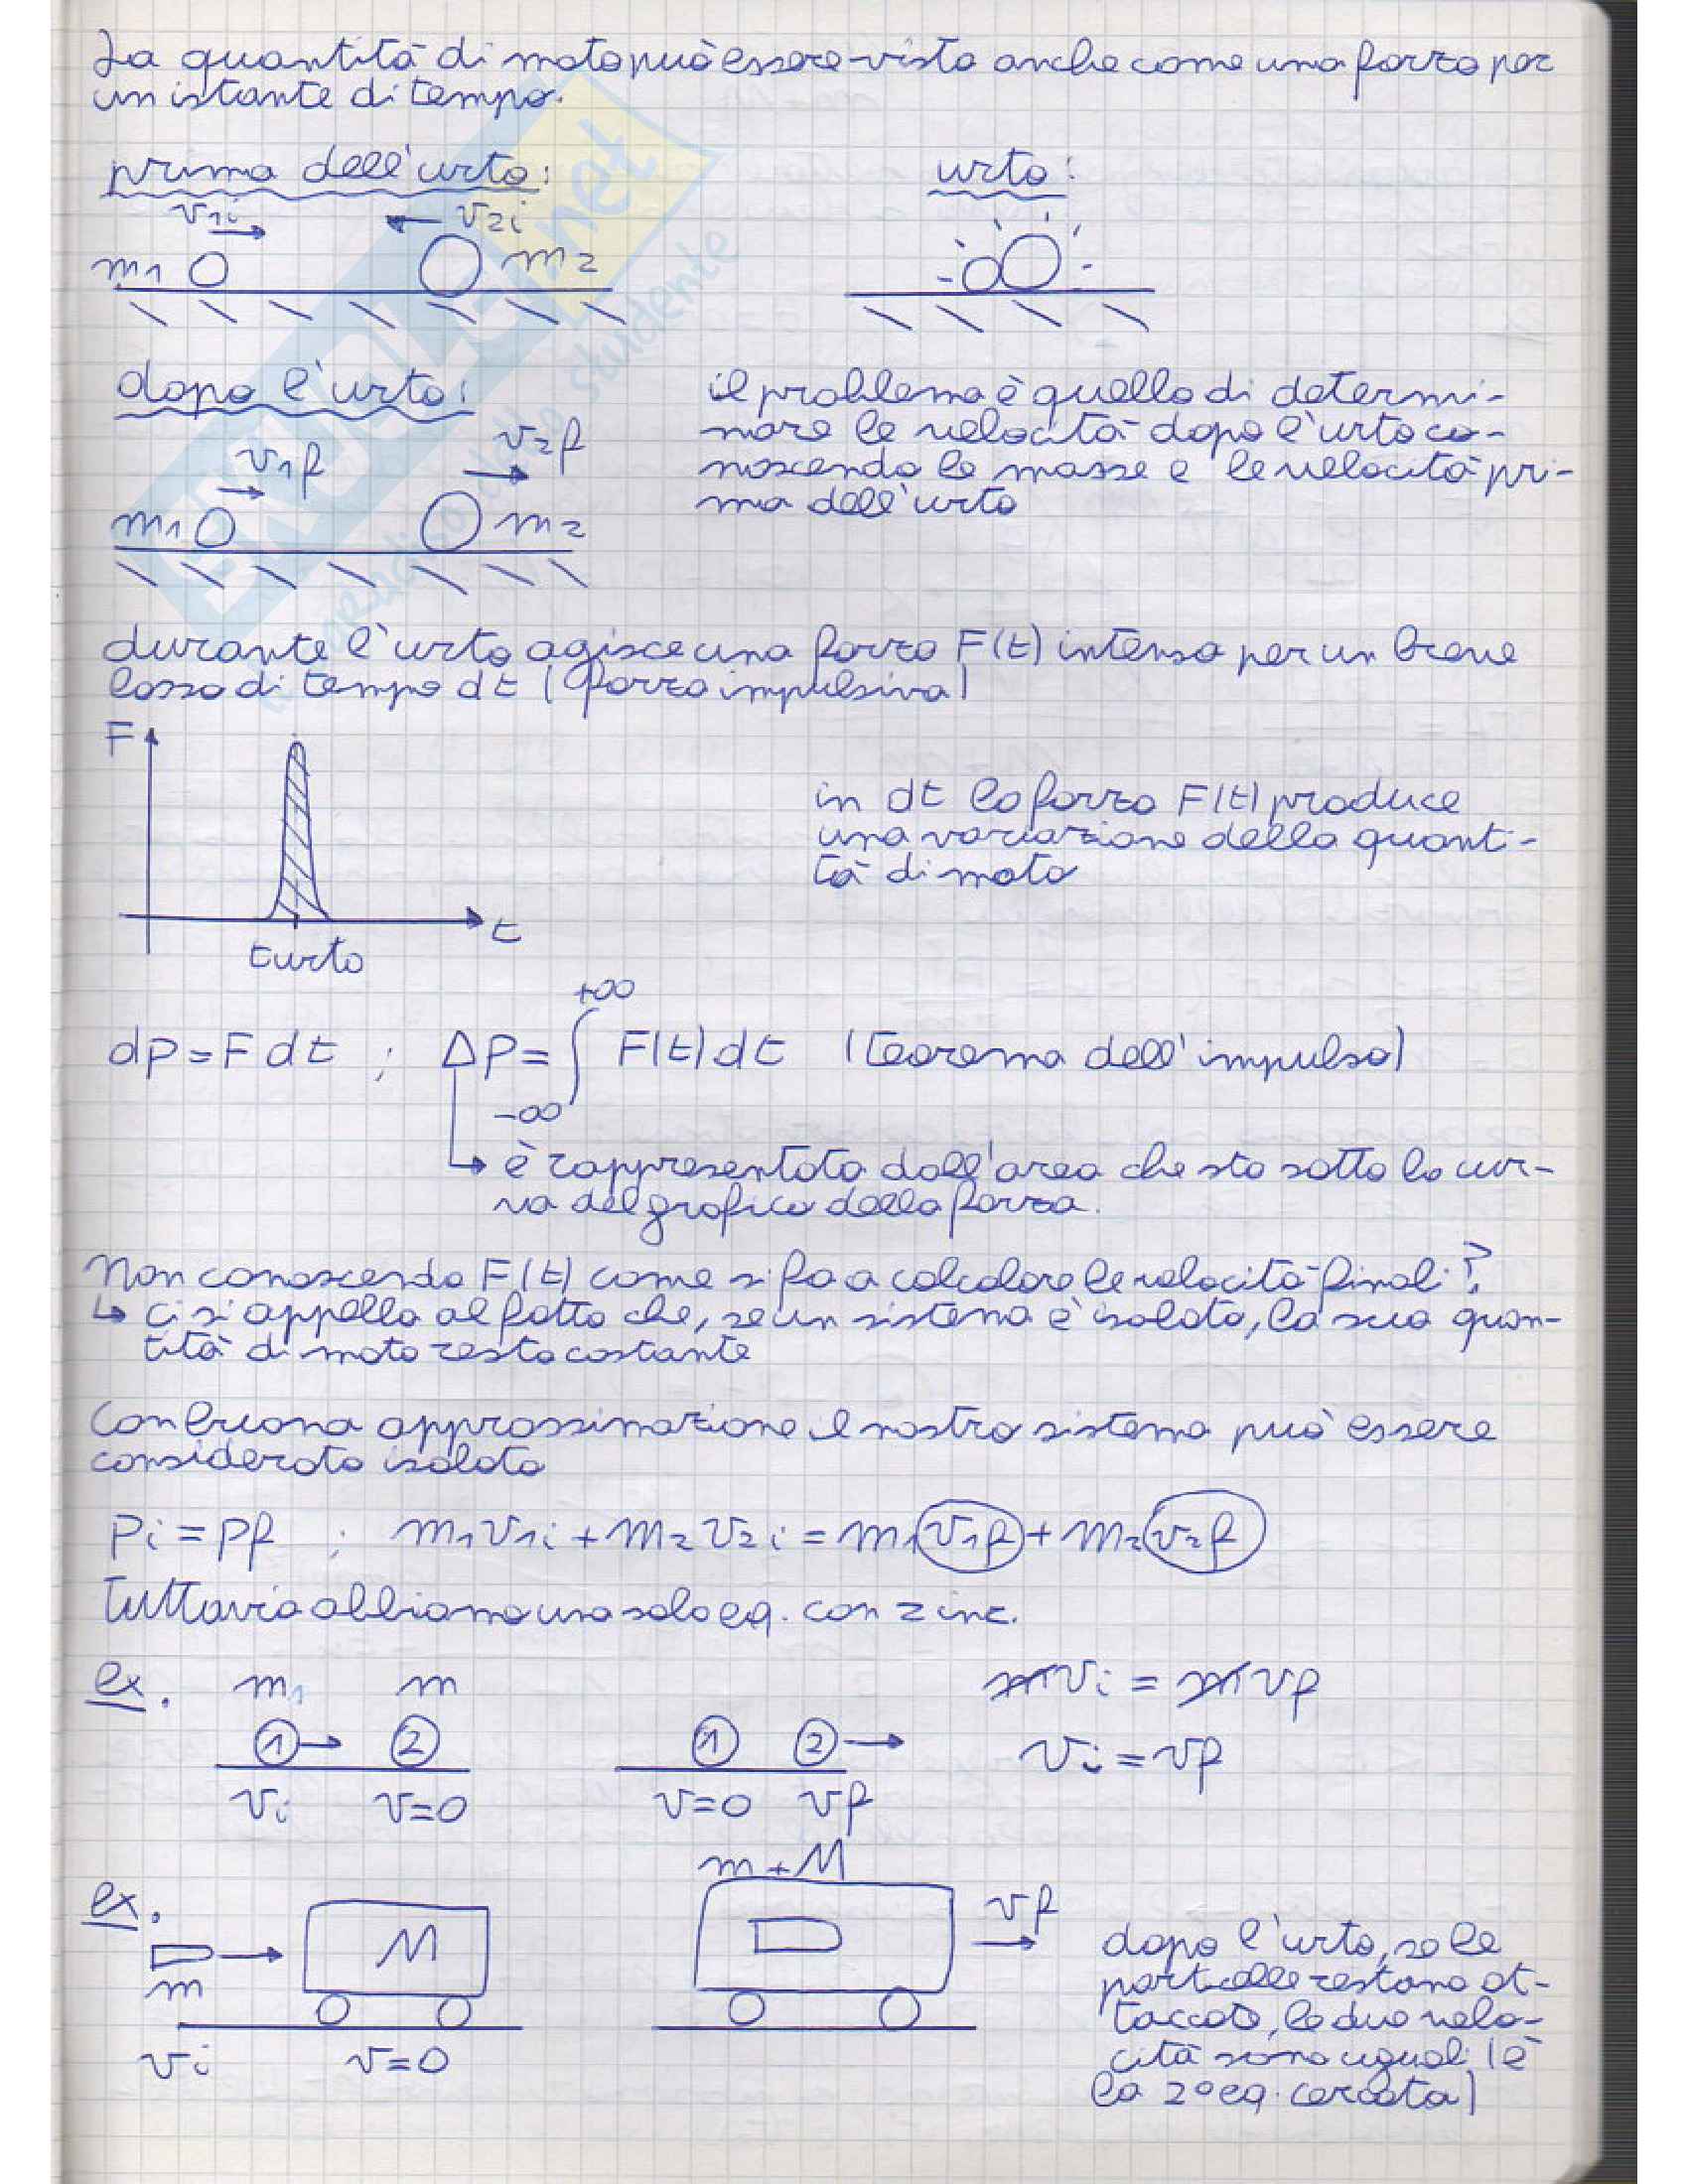 La quantità di moto può essere vista anche come una forza per
un istante di tempo.
prima dell'urto:
urto:
v1i
v2i
m1
m2
dopo l'urto:
v1f
v2f
m1
m2
il problema è quello di determi-
nare le velocità dopo l'urto co-
noscendo le masse e le velocità pri-
ma dell'urto
durante l'urto agisce una forza F(t) intensa per un breve
lasso di tempo dt (forza impulsiva)
F
t
turto
in dt la forza F(t) produce
una variazione della quanti-
tà di moto
dp = F dt ; Δp = ∫ F(t) dt (teorema dell'impulso)
+∞
-∞
↳ è rappresentata dall'area che sta sotto la cur-
va del grafico della forza.
Non conoscendo F(t) come si fa a calcolare le velocità finali?
↳ ci si appella al fatto che, se un sistema è isolato, la sua quan-
tità di moto resta costante
Con buona approssimazione il nostro sistema può essere
considerato isolato
pi = pf ; m1v1i + m2v2i = m1v1f + m2v2f
tuttavia abbiamo una sola eq. con 2 inc.
ex. m1 m
1 → 2
1 2 →
vi v=0
v=0 vf
mvi = mvf
vi = vf
ex.
m
M
vi v=0
m+M
vf
dopo l'urto, se le
particelle restano at-
taccate, le due velo-
cità sono uguali (è
la 2° eq. cercata)
ERGULE.net
studente